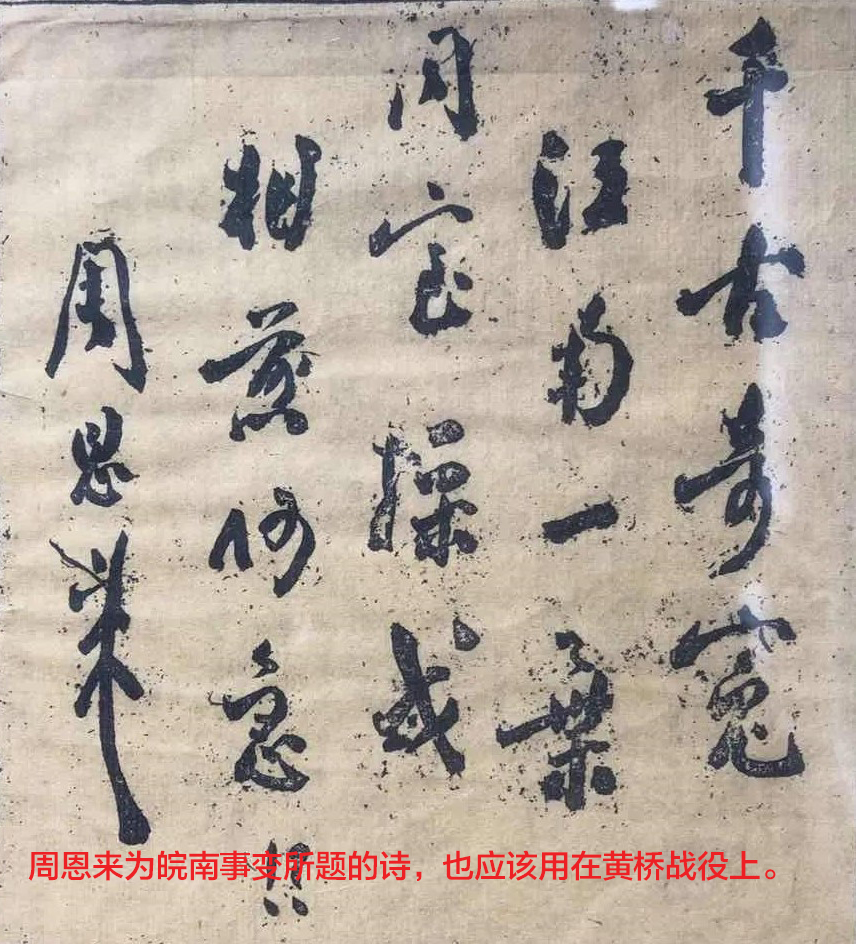 千古奇冤
江南一葉
同室操戈
相煎何急?!
周恩来
周恩来为皖南事变所题的诗，也应该用在黄桥战役上。